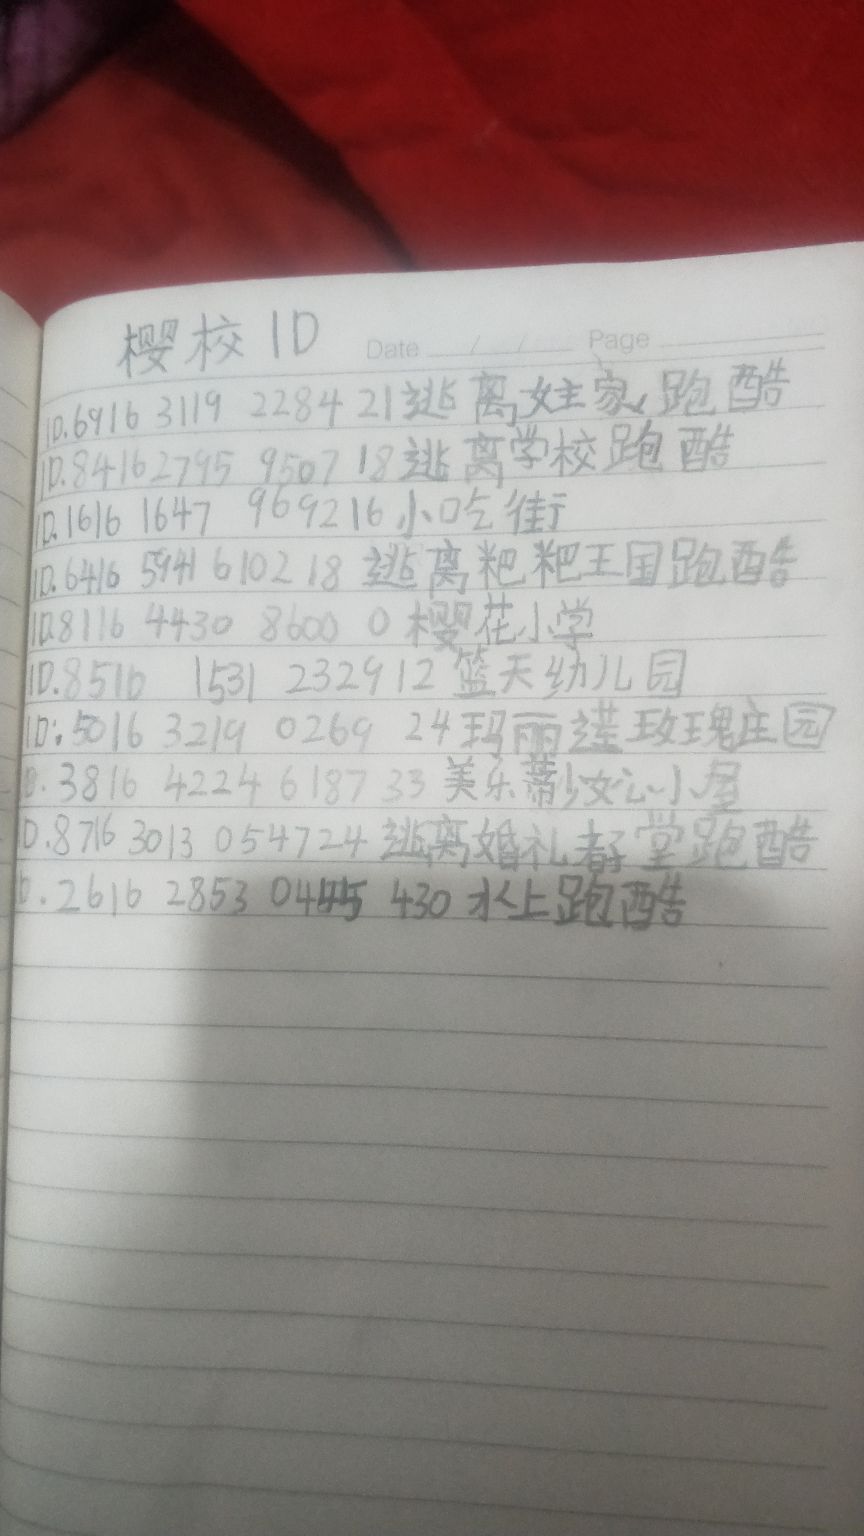 樱校ID
Date / / Page
ID.6916 3119 2284 21逃离女主家跑酷
ID.8416 2795 9507 18逃离学校跑酷
ID.1616 1647 969216小吃街
ID.6416 5941 6102 18 逃离粑粑王国跑酷
ID8116 4430 8600 0 樱花小学
ID.8516 1531 232912 篮天幼儿园
ID:5016 3219 0269 24玛丽莲玫瑰庄园
D.3816 4224 6187 33 美乐蒂少女心小屋
D.8716 3013 054724 逃离婚礼堂跑酷
D.2616 2853 0445 430 水上跑酷